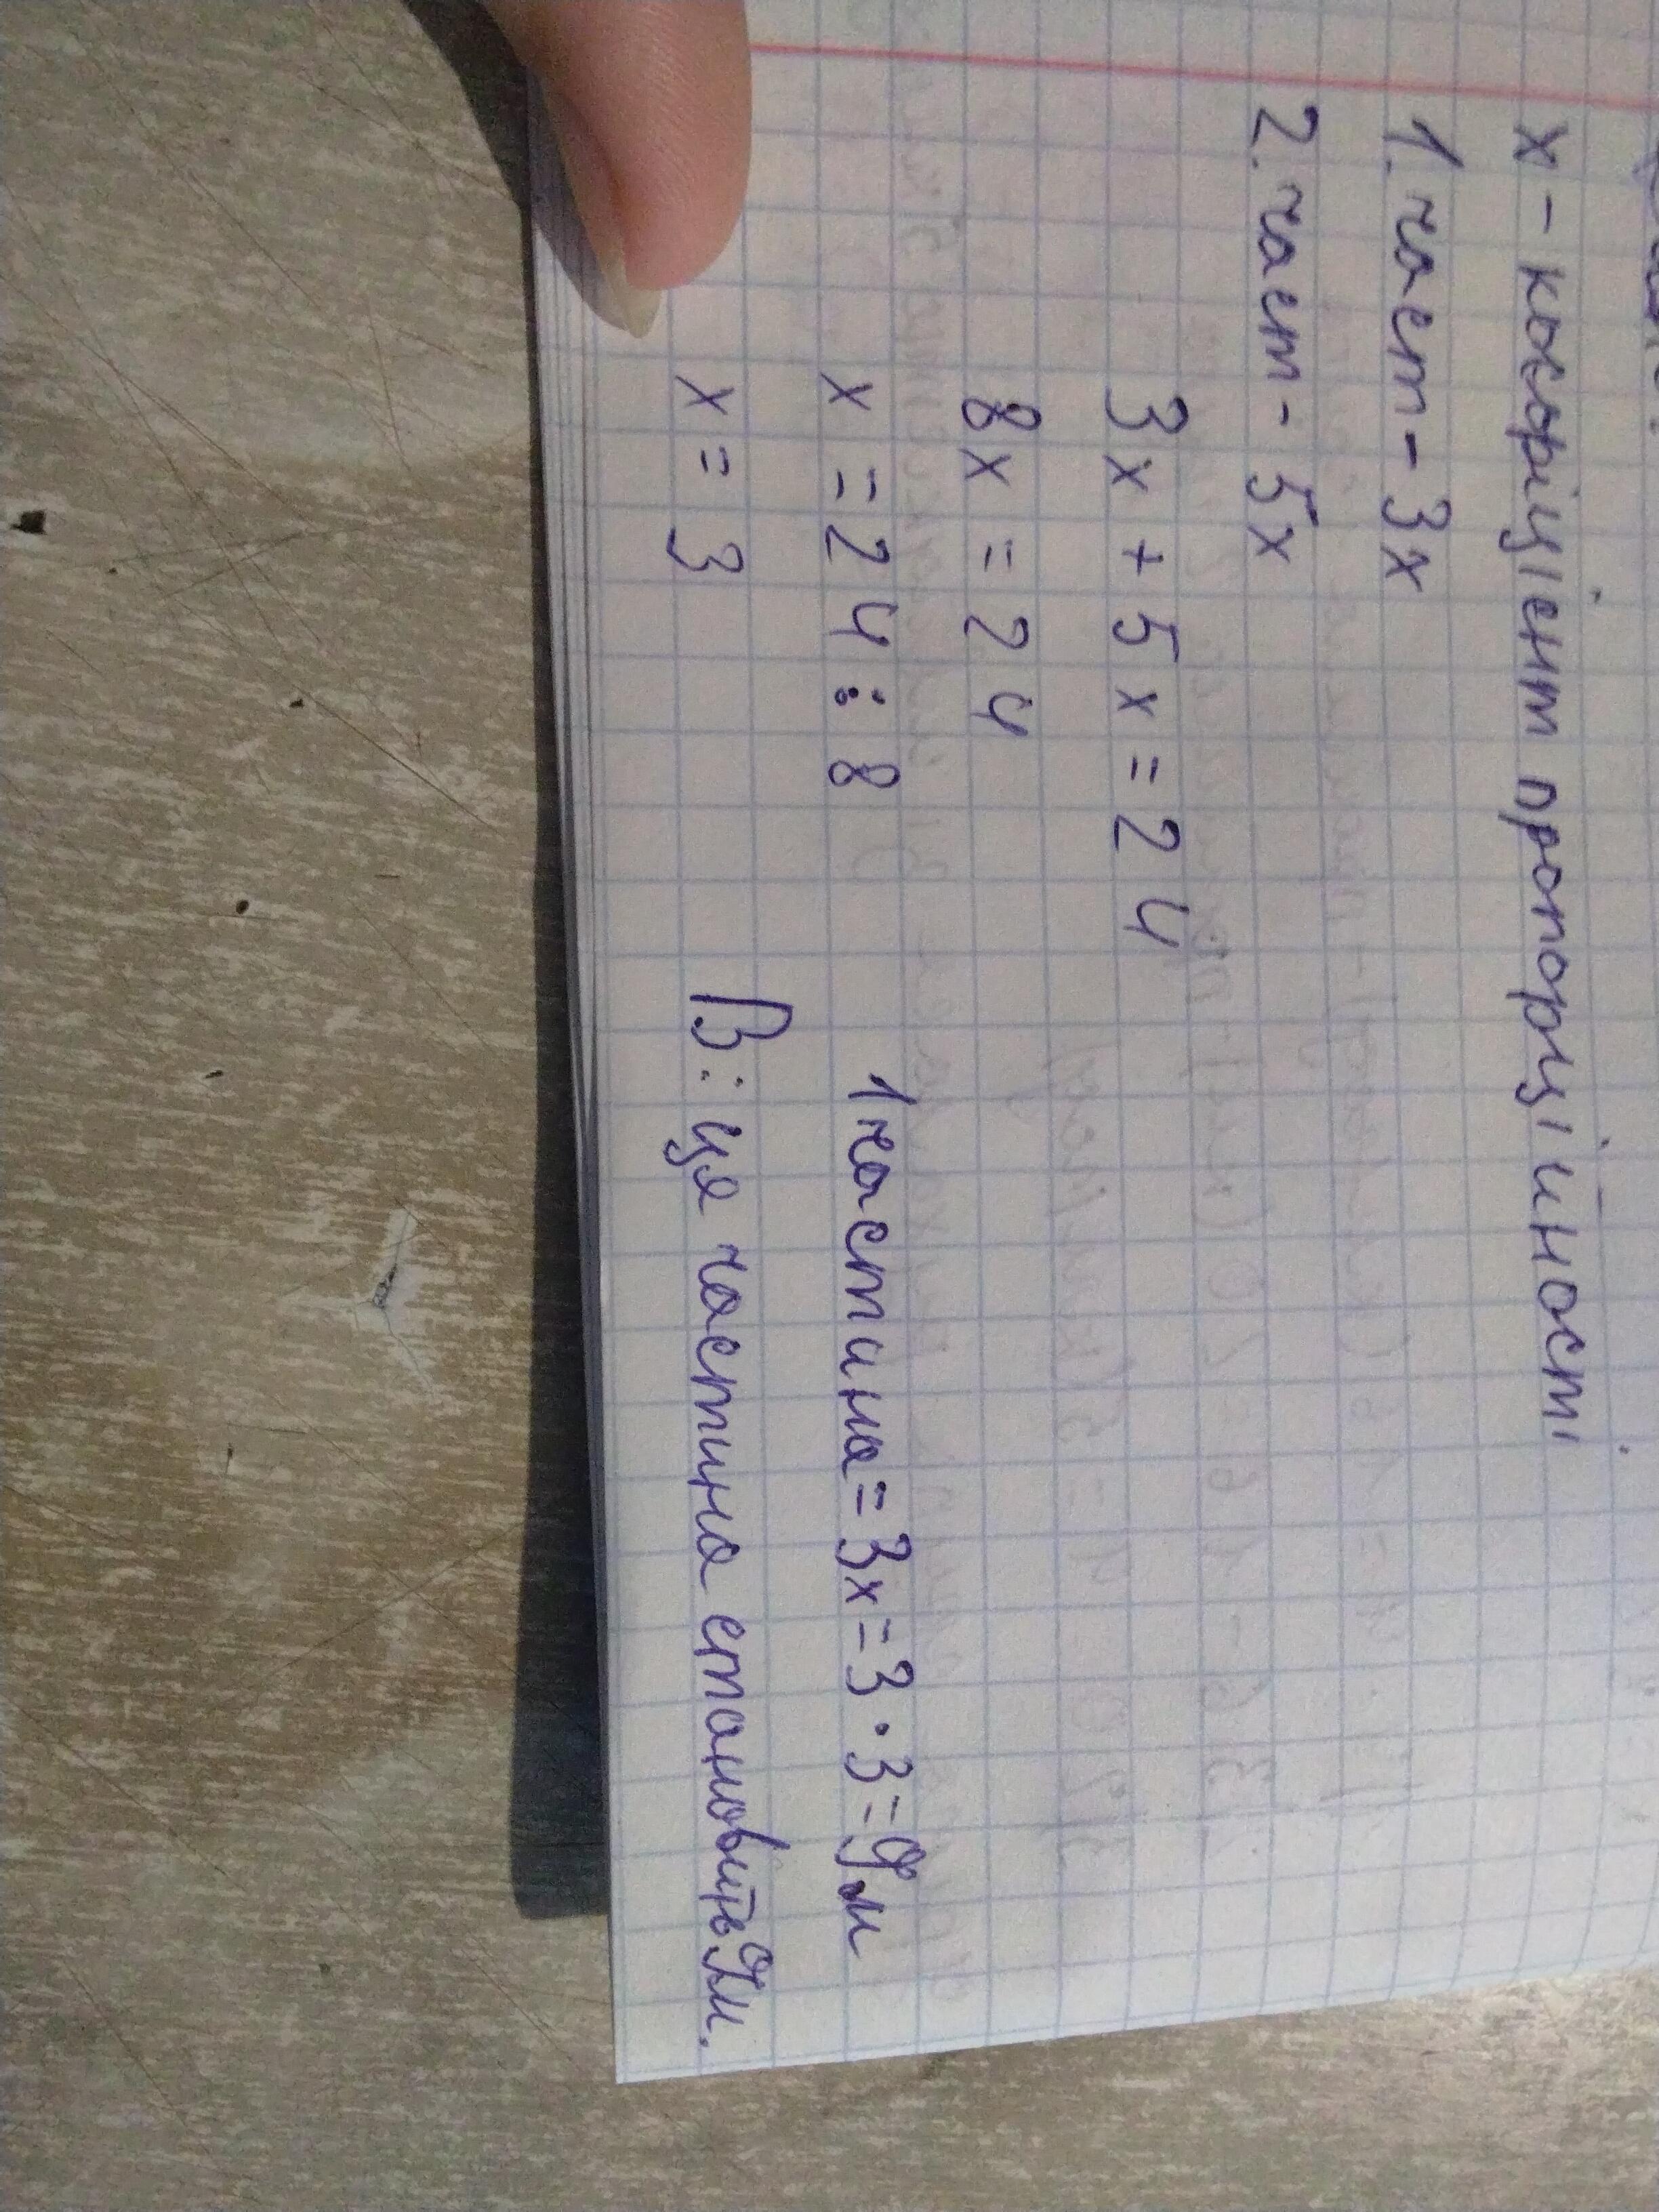 x - коефіцієнт пропорційності
1. част - 3x
2. част - 5x
3x + 5x = 24
8x = 24
x = 24 : 8
x = 3
1 частина = 3x = 3 · 3 = 9 м
В: ця частина становить 9 м.